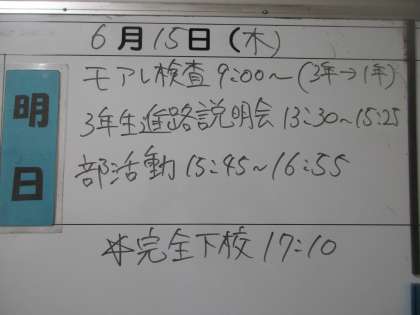 6月15日(木)
明日
モアレ検査 9:00～(3年→1年)
3年生進路説明会 13:30～15:25
部活動 15:45～16:55
☆完全下校 17:10